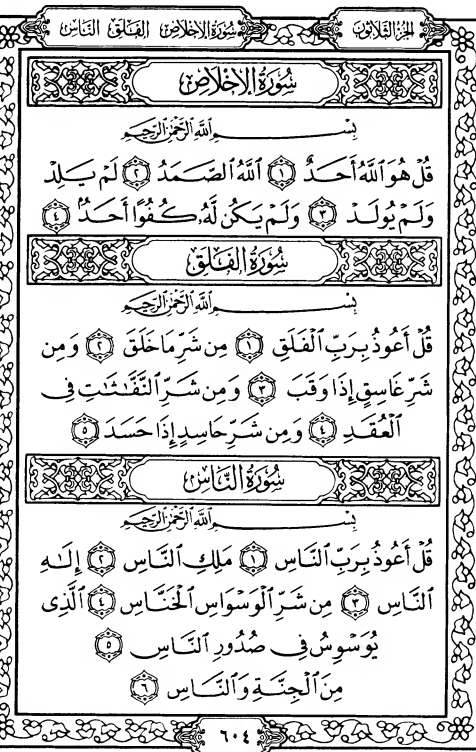 الجزء الثلاثون
سورة الإخلاص الفلق الناس
سُورَةُ الإِخْلَاص
بِسْمِ ٱللَّهِ ٱلرَّحْمَٰنِ ٱلرَّحِيمِ
قُلْ هُوَ ٱللَّهُ أَحَدٌ ١ ٱللَّهُ ٱلصَّمَدُ ٢ لَمْ يَلِدْ
وَلَمْ يُولَدْ ٣ وَلَمْ يَكُن لَّهُۥ كُفُوًا أَحَدٌۢ ٤
سُورَةُ الفَلَق
بِسْمِ ٱللَّهِ ٱلرَّحْمَٰنِ ٱلرَّحِيمِ
قُلْ أَعُوذُ بِرَبِّ ٱلْفَلَقِ ١ مِن شَرِّ مَا خَلَقَ ٢ وَمِن
شَرِّ غَاسِقٍ إِذَا وَقَبَ ٣ وَمِن شَرِّ ٱلنَّفَّٰثَٰتِ فِى
ٱلْعُقَدِ ٤ وَمِن شَرِّ حَاسِدٍ إِذَا حَسَدَ ٥
سُورَةُ النَّاس
بِسْمِ ٱللَّهِ ٱلرَّحْمَٰنِ ٱلرَّحِيمِ
قُلْ أَعُوذُ بِرَبِّ ٱلنَّاسِ ١ مَلِكِ ٱلنَّاسِ ٢ إِلَٰهِ
ٱلنَّاسِ ٣ مِن شَرِّ ٱلْوَسْوَاسِ ٱلْخَنَّاسِ ٤ ٱلَّذِى
يُوَسْوِسُ فِى صُدُورِ ٱلنَّاسِ ٥
مِنَ ٱلْجِنَّةِ وَٱلنَّاسِ ٦
٦٠٤